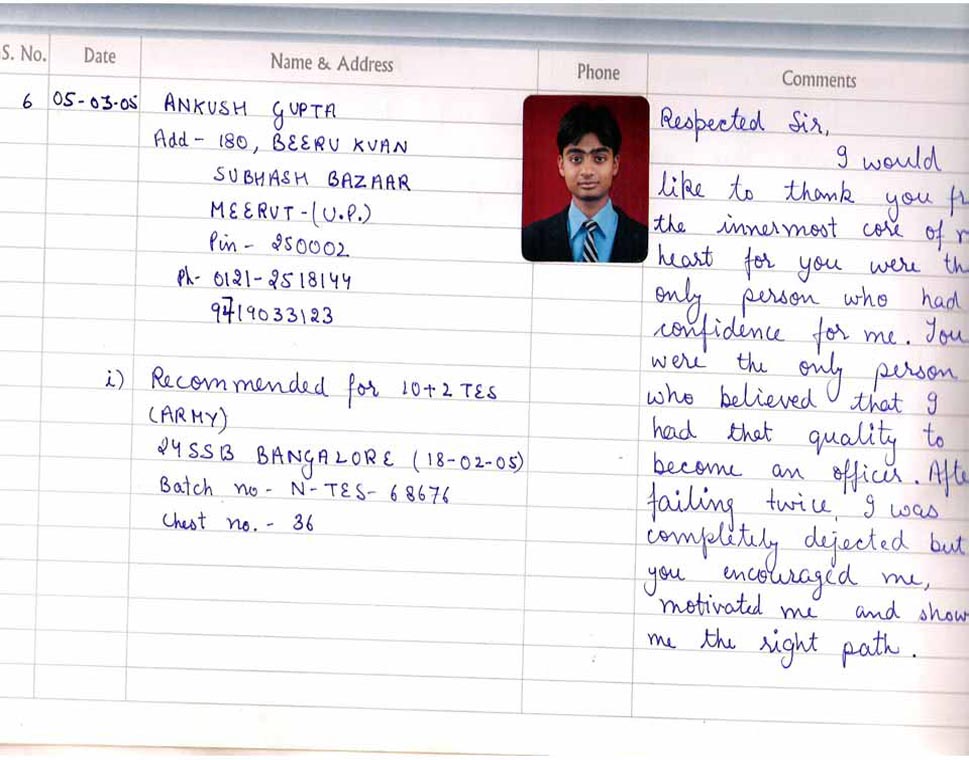 S. No. Date Name & Address Phone Comments
6 05-03-05 ANKUSH GUPTA
Add - 180, BEERU KUAN
SUBHASH BAZAAR
MEERUT - (U.P.)
Pin - 250002
Ph- 0121-2518144
9719033123
i) Recommended for 10+2 TES
(ARMY)
24 SSB BANGALORE (18-02-05)
Batch no - N-TES- 68676
Chest no. - 36
Respected Sir,
I would
like to thank you fr
the innermost core of m
heart for you were th
only person who had
confidence for me. You
were the only person
who believed that I
had that quality to
become an officer. Afte
failing twice, I was
completely dejected but
you encouraged me,
motivated me and show
me the right path.